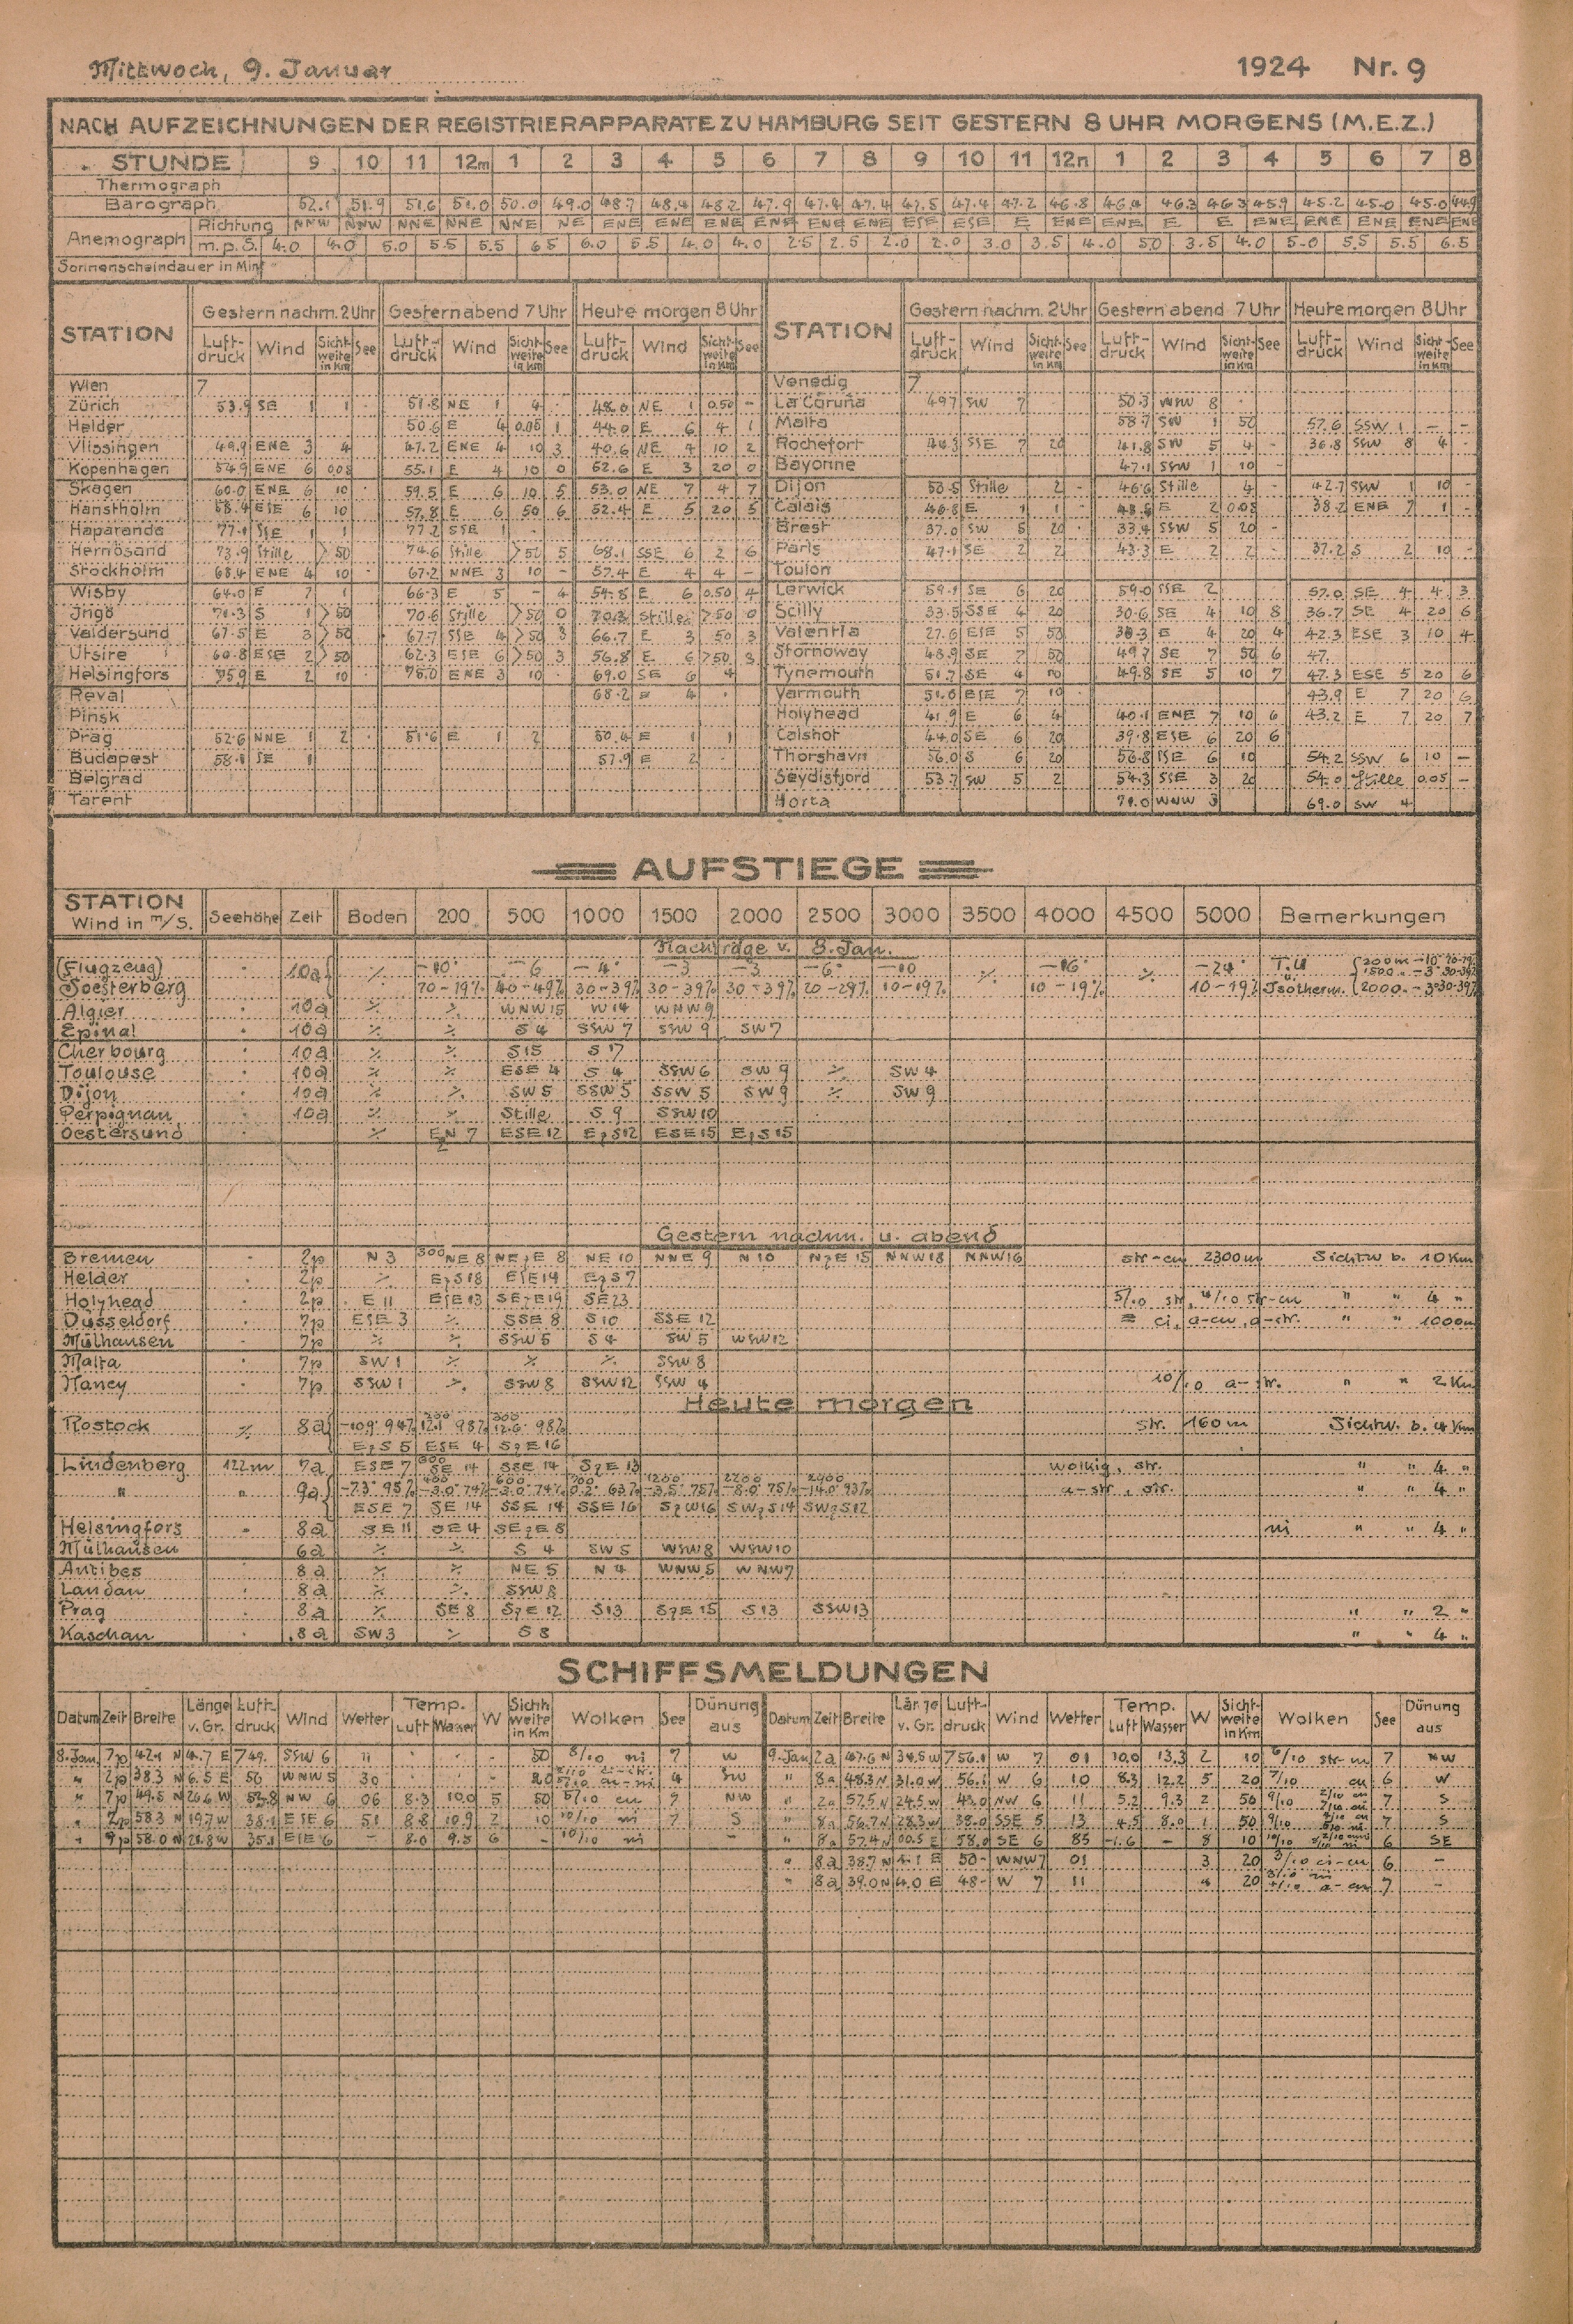 Mittwoch, 9. Januar 1924 Nr. 9
NACH AUFZEICHNUNGEN DER REGISTRIERAPPARATE ZU HAMBURG SEIT GESTERN 8 UHR MORGENS (M.E.Z.)
STUNDE 9 10 11 12m 1 2 3 4 5 6 7 8 9 10 11 12n 1 2 3 4 5 6 7 8
Thermograph
Barograph 52.1 51.9 51.6 51.0 50.0 49.0 48.7 48.4 48.2 47.9 47.4 47.4 47.5 47.4 47.2 46.8 46.4 46.3 46.3 45.9 45.2 45.0 45.0 44.9
Anemograph Richtung NNW NNW NNE NNE NNE NE ENE ENE ENE ENE ENE ENE ESE ESE E ENE ENE E E ENE ENE ENE ENE ENE
m.p.S. 4.0 4.0 5.0 5.5 5.5 6.5 6.0 5.5 4.0 4.0 2.5 2.5 2.0 2.0 3.0 3.5 4.0 5.0 3.5 4.0 5.0 5.5 5.5 6.5
Sonnenscheindauer in Min.
STATION Gestern nachm. 2 Uhr Gestern abend 7 Uhr Heute morgen 8 Uhr STATION Gestern nachm. 2 Uhr Gestern abend 7 Uhr Heute morgen 8 Uhr
Luft-druck Wind Sicht-weite in Km See Luft-druck Wind Sicht-weite in Km See Luft-druck Wind Sicht-weite in Km See Luft-druck Wind Sicht-weite in Km See Luft-druck Wind Sicht-weite in Km See Luft-druck Wind Sicht-weite in Km See
Wien 7 Venedig 7
Zürich 53.9 SE 1 1 51.8 NE 1 4 48.0 NE 1 0.50 - La Coruña 49.7 SW 7 50.3 WSW 8
Helder 50.6 E 4 0.05 1 44.0 E 6 4 1 Malta 58.7 SW 1 50 57.6 SSW 1 - -
Vlissingen 49.9 ENE 3 4 47.2 ENE 4 10 3 40.6 NE 4 10 2 Rochefort 44.3 SSE 7 20 41.8 SW 5 4 - 36.8 SSW 8 4 -
Kopenhagen 54.9 ENE 6 0.08 55.1 E 4 10 0 52.6 E 3 20 0 Bayonne 47.1 SSW 1 10 -
Skagen 60.0 ENE 6 10 59.5 E 6 10 5 53.0 NE 7 4 7 Dijon 50.5 Stille 2 - 46.6 Stille 4 - 42.7 SSW 1 10 -
Hanstholm 58.4 ESE 6 10 57.8 E 6 50 6 52.4 E 5 20 5 Calais 46.8 E 1 1 E 2 0.05 38.2 ENE 7 1 -
Haparanda 77.1 SSE 1 1 77.2 SSE 1 Brest 37.0 SW 5 20 33.4 SSW 5 20 -
Hernösand 73.9 Stille >50 74.6 Stille >50 5 68.1 SSE 6 2 6 Paris 47.1 SE 2 2 43.3 E 2 2 37.2 S 2 10 -
Stockholm 68.4 ENE 4 10 67.2 NNE 3 10 - 57.4 E 4 4 - Toulon
Wisby 64.0 E 7 1 66.3 E 5 - 4 54.8 E 6 0.50 4 Lerwick 59.1 SE 6 20 59.0 SSE 2 57.0 SE 4 4 3
Ingö 70.3 S 1 >50 70.6 Stille >50 0 70.8 Stille >50 0 Scilly 33.5 SSE 4 20 30.6 SE 4 10 8 36.7 SE 4 20 6
Valdersund 67.5 E 3 >50 67.7 SSE 4 >50 3 66.7 E 3 50 3 Valentia 27.6 ESE 5 50 E 4 20 4 42.3 ESE 3 10 4
Utsire 60.8 ESE 2 >50 62.3 ESE 6 >50 3 56.8 E 6 >50 3 Stornoway 48.9 SE 7 50 49.7 SE 7 50 6 47.
Helsingfors 75.9 E 2 10 75.0 ENE 3 10 69.0 SE 6 4 Tynemouth 51.7 SE 4 10 49.8 SE 5 10 7 47.3 ESE 5 20 6
Reval 68.2 E 4 Yarmouth 51.0 ESE 7 10 43.9 E 7 20 6
Pinsk Holyhead 41.9 E 6 4 40.1 ENE 7 10 6 43.2 E 7 20 7
Prag 52.6 NNE 1 2 51.6 E 1 2 50.4 E 1 1 Calshot 44.0 SE 6 20 39.8 ESE 6 20 6
Budapest 58.1 SE 1 57.9 E 2 Thorshavn 56.0 S 6 20 56.8 SSE 6 10 54.2 SSW 6 10 -
Belgrad Seydisfjord 53.7 SW 5 2 54.3 SSE 3 20 54.0 Stille 0.05 -
Tarent Horta 71.0 WNW 3 69.0 SW 4
AUFSTIEGE
STATION Wind in m/S. Seehöhe Zeit Boden 200 500 1000 1500 2000 2500 3000 3500 4000 4500 5000 Bemerkungen
Nachträge v. 8. Jan.
(Flugzeug) 10a % -10° -6 -4° -3 -3 -6° -10 % -16° % -24° T.U. {200m -10° 70-19%
Soesterberg 70-19% 40-49% 30-39% 30-39% 30-39% 20-29% 10-19% 10-19% 10-19% Isotherm. 1500 " -3° 30-39% 2000 " -3° 30-39%
Algier 10a % % WNW 15 W 14 WNW 9
Epinal 10a % % S 4 SSW 7 SSW 9 SW 7
Cherbourg 10a % % S 15 S 17
Toulouse 10a % % ESE 4 S 4 SSW 6 SW 9 % SW 4
Dijon 10a % % SW 5 SSW 5 SSW 5 SW 9 % SW 9
Perpignau 10a % % Stille S 9 SSW 10
Oestersund % EzN 7 ESE 12 EzS 12 ESE 15 EzS 15
Gestern nachm. u. abend
Bremen 2p N 3 300 NE 8 NEzE 8 NE 10 NNE 9 N 10 NzE 15 NNW 18 NNW 16 str-cu 2300 m Sichtw b. 10 Km
Helder 2p % EzS 18 ESE 19 EzS 7
Holyhead 2p E 11 ESE 13 SEzE 19 SE 23 5/10 str, 4/10 str-cu " " 4 "
Düsseldorf 7p ESE 3 % SSE 8 S 10 SSE 12 = ci, a-cu, a-str. " " 1000 m
Mülhausen 7p % % SSW 5 S 4 SW 5 WSW 12
Malta 7p SW 1 % % % SSW 8
Nancy 7p SSW 1 % SSW 8 SSW 12 SSW 4 10/10 a-str. " " 2 Km
Heute morgen
Rostock % 8a -10.9° 94% 200 12.1° 98% 300 12.6° 98% str. 160 m Sichtw. b. 4 Km
EzS 5 ESE 4 SzE 16
Lindenberg 122 m 7a ESE 7 300 SE 14 SSE 14 SzE 13 wolkig, str. " " 4 "
" " 9a -7.3° 95% 400 -3.0° 74% 600 -3.0° 74% 700 0.2° 63% 1200 -3.5° 75% 2200 -8.0° 75% 2900 -14.0° 93% a-str, str. " " 4 "
ESE 7 SE 14 SSE 14 SSE 16 SzW 16 SWzS 14 SWzS 12
Helsingfors 8a SE 11 SE 4 SEzE 8 ni " " 4 "
Mülhausen 6a % % S 4 SW 5 WSW 8 WSW 10
Antibes 8a % % NE 5 N 4 WNW 5 WNW 7
Landau 8a % % SSW 8
Prag 8a % SE 8 SzE 12 S 13 SzE 15 S 13 SSW 13 " " 2 "
Kaschau 8a SW 3 % S 8 " " 4 "
SCHIFFSMELDUNGEN
Datum Zeit Breite Länge v. Gr. Luft-druck Wind Wetter Temp. Luft Wasser W Sicht-weite in Km Wolken See Dünung aus Datum Zeit Breite Länge v. Gr. Luft-druck Wind Wetter Temp. Luft Wasser W Sicht-weite in Km Wolken See Dünung aus
8. Jan. 7p 42.1 N 4.7 E 749. SSW 6 11 50 8/10 ni 7 W 9. Jan 2a 47.6 N 34.5 W 756.1 W 7 01 10.0 13.3 2 10 6/10 str-cu 7 NW
" 2p 38.3 N 6.5 E 50 WNW 5 30 20 cu-ni 4 SW " 8a 48.3 N 31.0 W 56.1 W 6 10 8.3 12.2 5 20 7/10 cu 6 W
" 7p 49.5 N 26.6 W 52.8 NW 6 06 8.3 10.0 5 50 5/10 cu 7 NW " 2a 57.5 N 24.5 W 43.0 NW 6 11 5.2 9.3 2 50 9/10 7 S
" 2p 58.3 N 19.7 W 38.1 ESE 6 51 8.8 10.9 2 10 10/10 ni 7 S " 8a 56.7 N 28.3 W 38.0 SSE 5 13 4.5 8.0 1 50 9/10 7 S
" 9p 58.0 N 21.8 W 35.1 ESE 6 - 8.0 9.5 6 - 10/10 ni - " 8a 57.4 N 00.5 E 58.0 SE 6 85 -1.6 - 8 10 10/10 6 SE
" 8a 38.7 N 4.1 E 50- WNW 7 01 3 20 3/10 ci-cu 6 -
" 8a 39.0 N 4.0 E 48- W 7 11 4 20 3/10 ni 4/10 a-cu 7 -